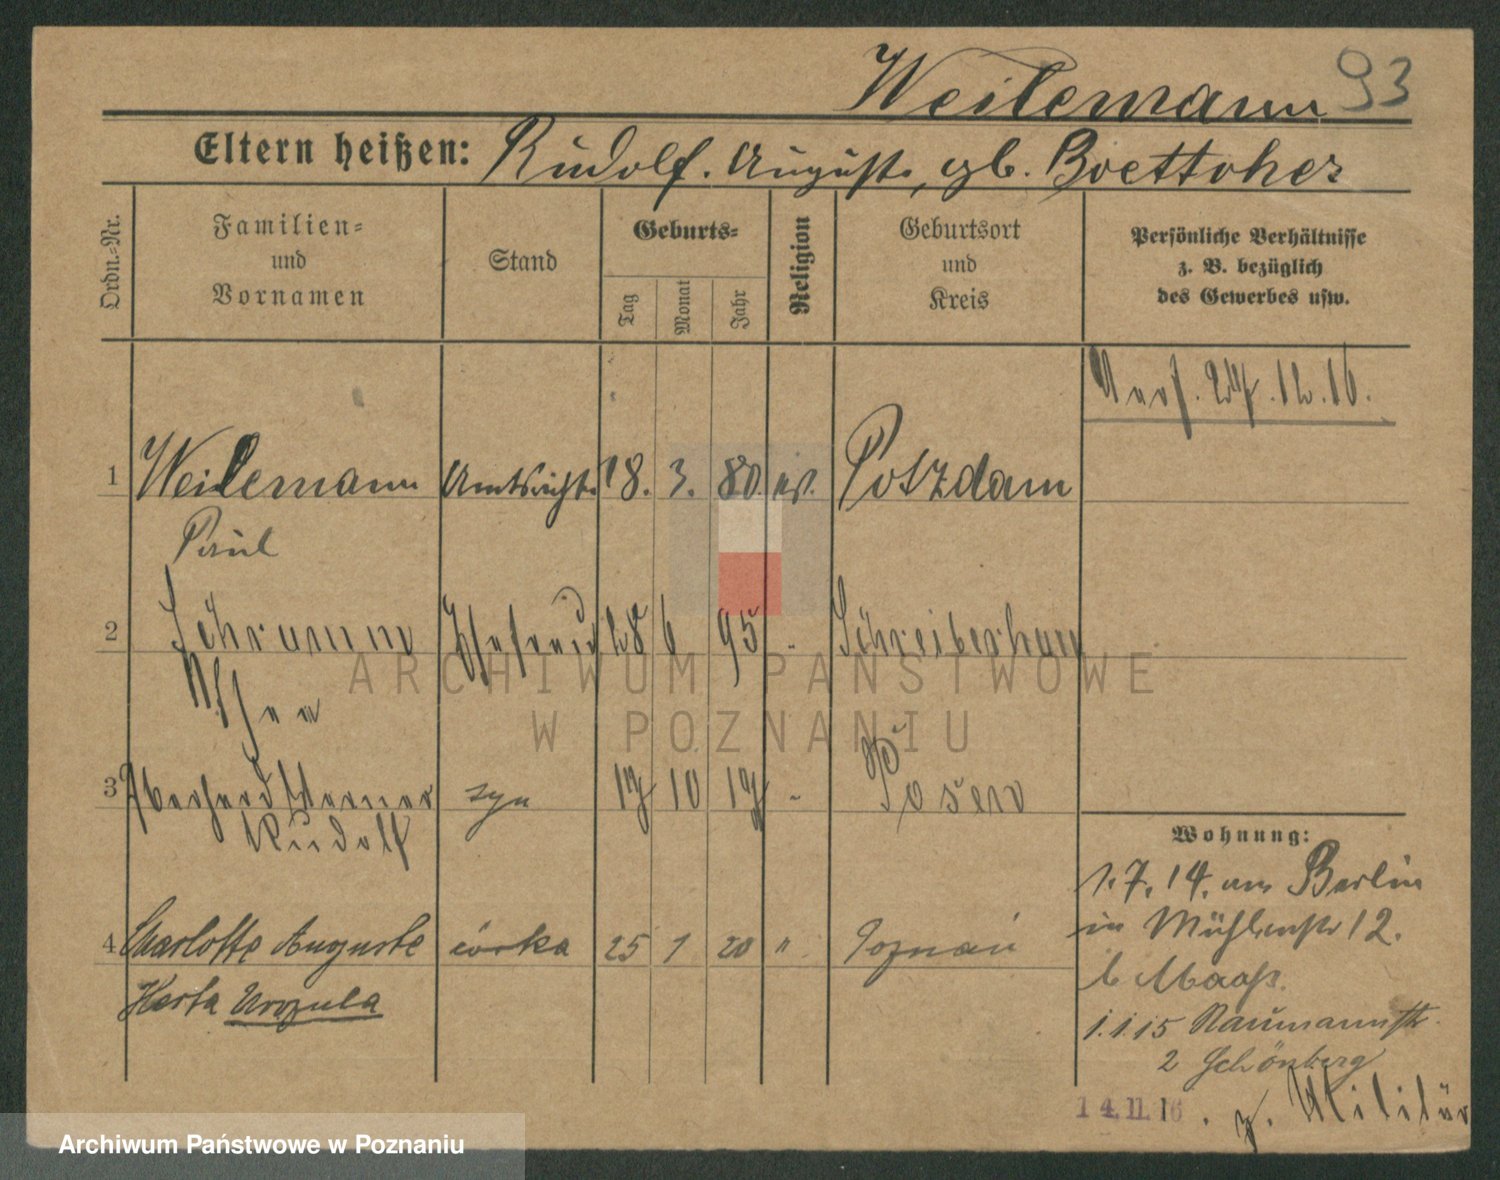 Weilemann 93
Eltern heißen: Rudolf. Auguste, gb. Boettcher
Ordn.-Nr.
Familien-
und
Vornamen
Stand
Geburts-
Tag
Monat
Jahr
Religion
Geburtsort
und
Kreis
Persönliche Verhältnisse
z. B. bezüglich
des Gewerbes usw.
24.12.16.
1 Weilemann Amtsricht. 18. 3. 80. ev. Potzdam
Paul
2 Schramm Ehefrau 28 6 95 - Schreiberhau
3 Eberhard Werner syn 17 10 17 - Posen
Rudolf
4 Charlotte Auguste córka 25 1 20 " Poznań
Herta Urszula
Wohnung:
1.7.14. aus Berlin
in Mühlenstr 12.
b Maaß.
1.1.15 Naumannstr.
2 Schönberg
14.11.16. z. Militär
ARCHIWUM PAŃSTWOWE
W POZNANIU
Archiwum Państwowe w Poznaniu